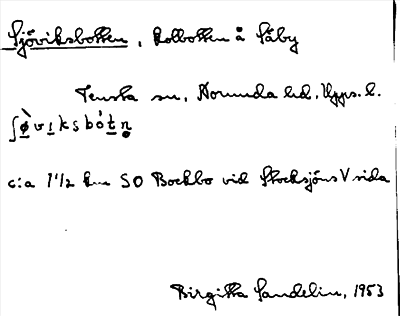 Sjöviksbotten, kolbotten å Säby
Tensta sn, Norunda hd, Upps. l.
ʃø̀vɪksbót̲n̥
c:a 1 1/2 km SO Bockbo vid Stocksjöns V sida
Birgitta Sandelin, 1953